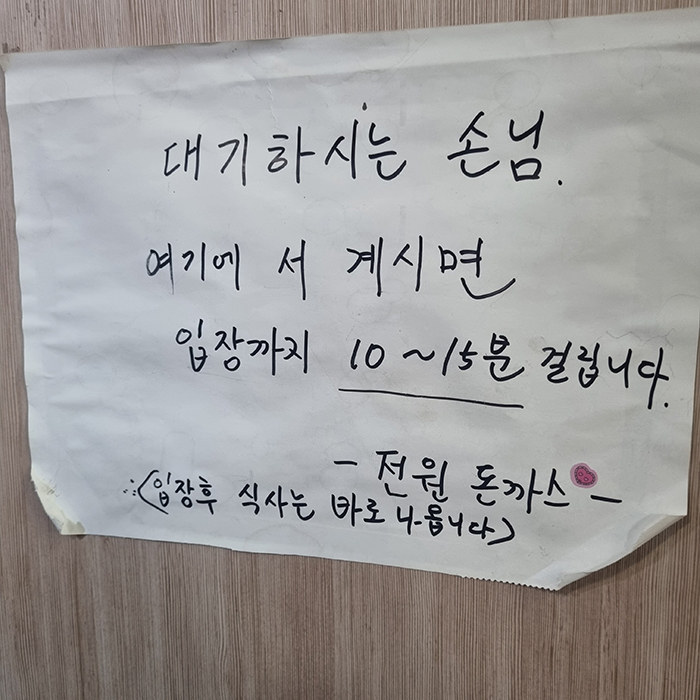 대기하시는 손님.
여기에 서 계시면
입장까지 10~15분 걸립니다.
- 전원 돈까스 -
∴(입장후 식사는 바로 나옵니다)